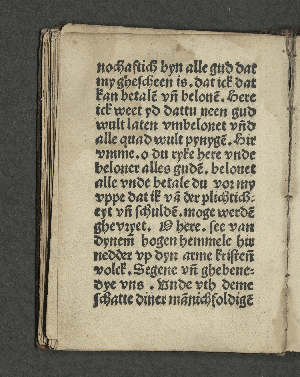 nochaftich byn alle gud dat
my ghescheen is. dat ick dat
kan betalē vn̄ belonē. Here
ick weet yd dattu neen gud
wult laten vmbelonet vn̄d
alle quad wult pynygē. Hir
vmme. o du ryke here vnde
beloner alles gudē. belonet
alle vnde betale du vor my
vppe dat ik vā der plichtich-
eyt vn̄ schuldē. moge werdē
ghevryet. O here. see van
dynem̄ hogen hemmele hir
nedder vp dyn arme kristen̄
volck. Segene vn̄ ghebene-
dye vns. Vnde vth deme
schatte diner mānichfoldigē